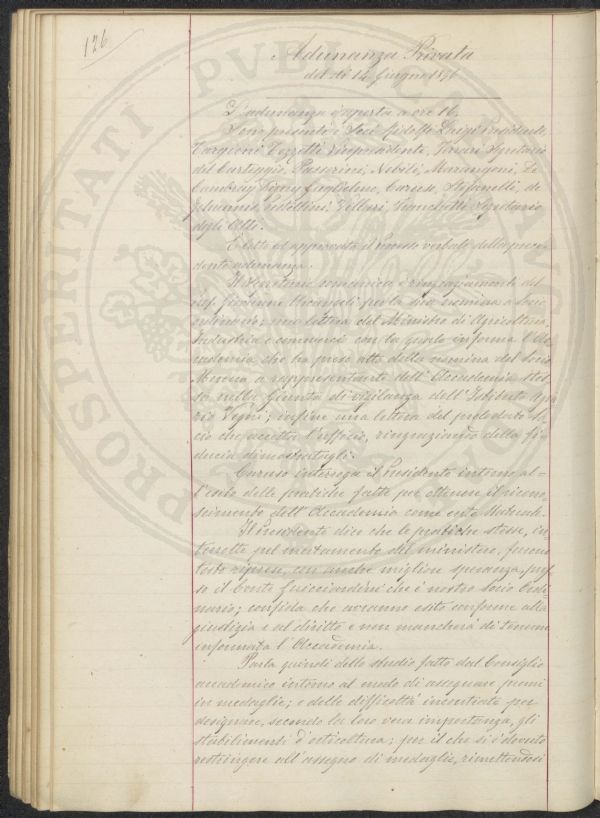 126
Adunanza Privata
del dì 14 Giugno 1896
L'adunanza è aperta a ore 16.
Sono presenti i Soci Ridolfi Luigi Presidente,
Targioni Tozzetti Vicepresidente, Ferrari Segretario
del Carteggio, Passerini, Nobili, Marangoni, De
Cambray Digny Guglielmo, Caruso, Stefanelli, de
Johannis, Pestellini, Villari, Segretario
degli Atti.
È letto ed approvato il processo verbale della prece-
dente adunanza.
Il Segretario comunica i ringraziamenti del
per la sua nomina a Socio
una lettera del Ministro di Agricoltura,
Industria e commercio con la quale informa l'Ac-
cademia che ha preso atto della nomina del Socio
a rappresentante dell'Accademia stes-
sa nella Giunta di vigilanza dell'Istituto Agra-
rio Vegni; infine una lettera del predetto So-
cio che accetta l'ufficio, ringraziando della fi-
ducia dimostratagli.
Caruso interroga il Presidente intorno al-
l'esito delle pratiche fatte per ottenere il ricono-
scimento dell'Accademia come ente Morale.
Il Presidente dice che le pratiche stesse, in-
terrotte pel mutamento del ministero, furono
tosto riprese, con anche migliore speranza, pres-
so il Conte Guicciardini che è nostro Socio Ordi-
nario; confida che avranno esito conforme alla
giustizia e al diritto e non mancherà di tenerne
informata l'Accademia.
Parla quindi dello studio fatto dal Consiglio
accademico intorno al modo di assegnare premi
in medaglie; e delle difficoltà incontrate per
designare, secondo la loro vera importanza, gli
stabilimenti d'orticoltura; per il che si è dovuto
restringere all'assegno di medaglie, rimettendosi
PROSPERITATI PVBLICAE